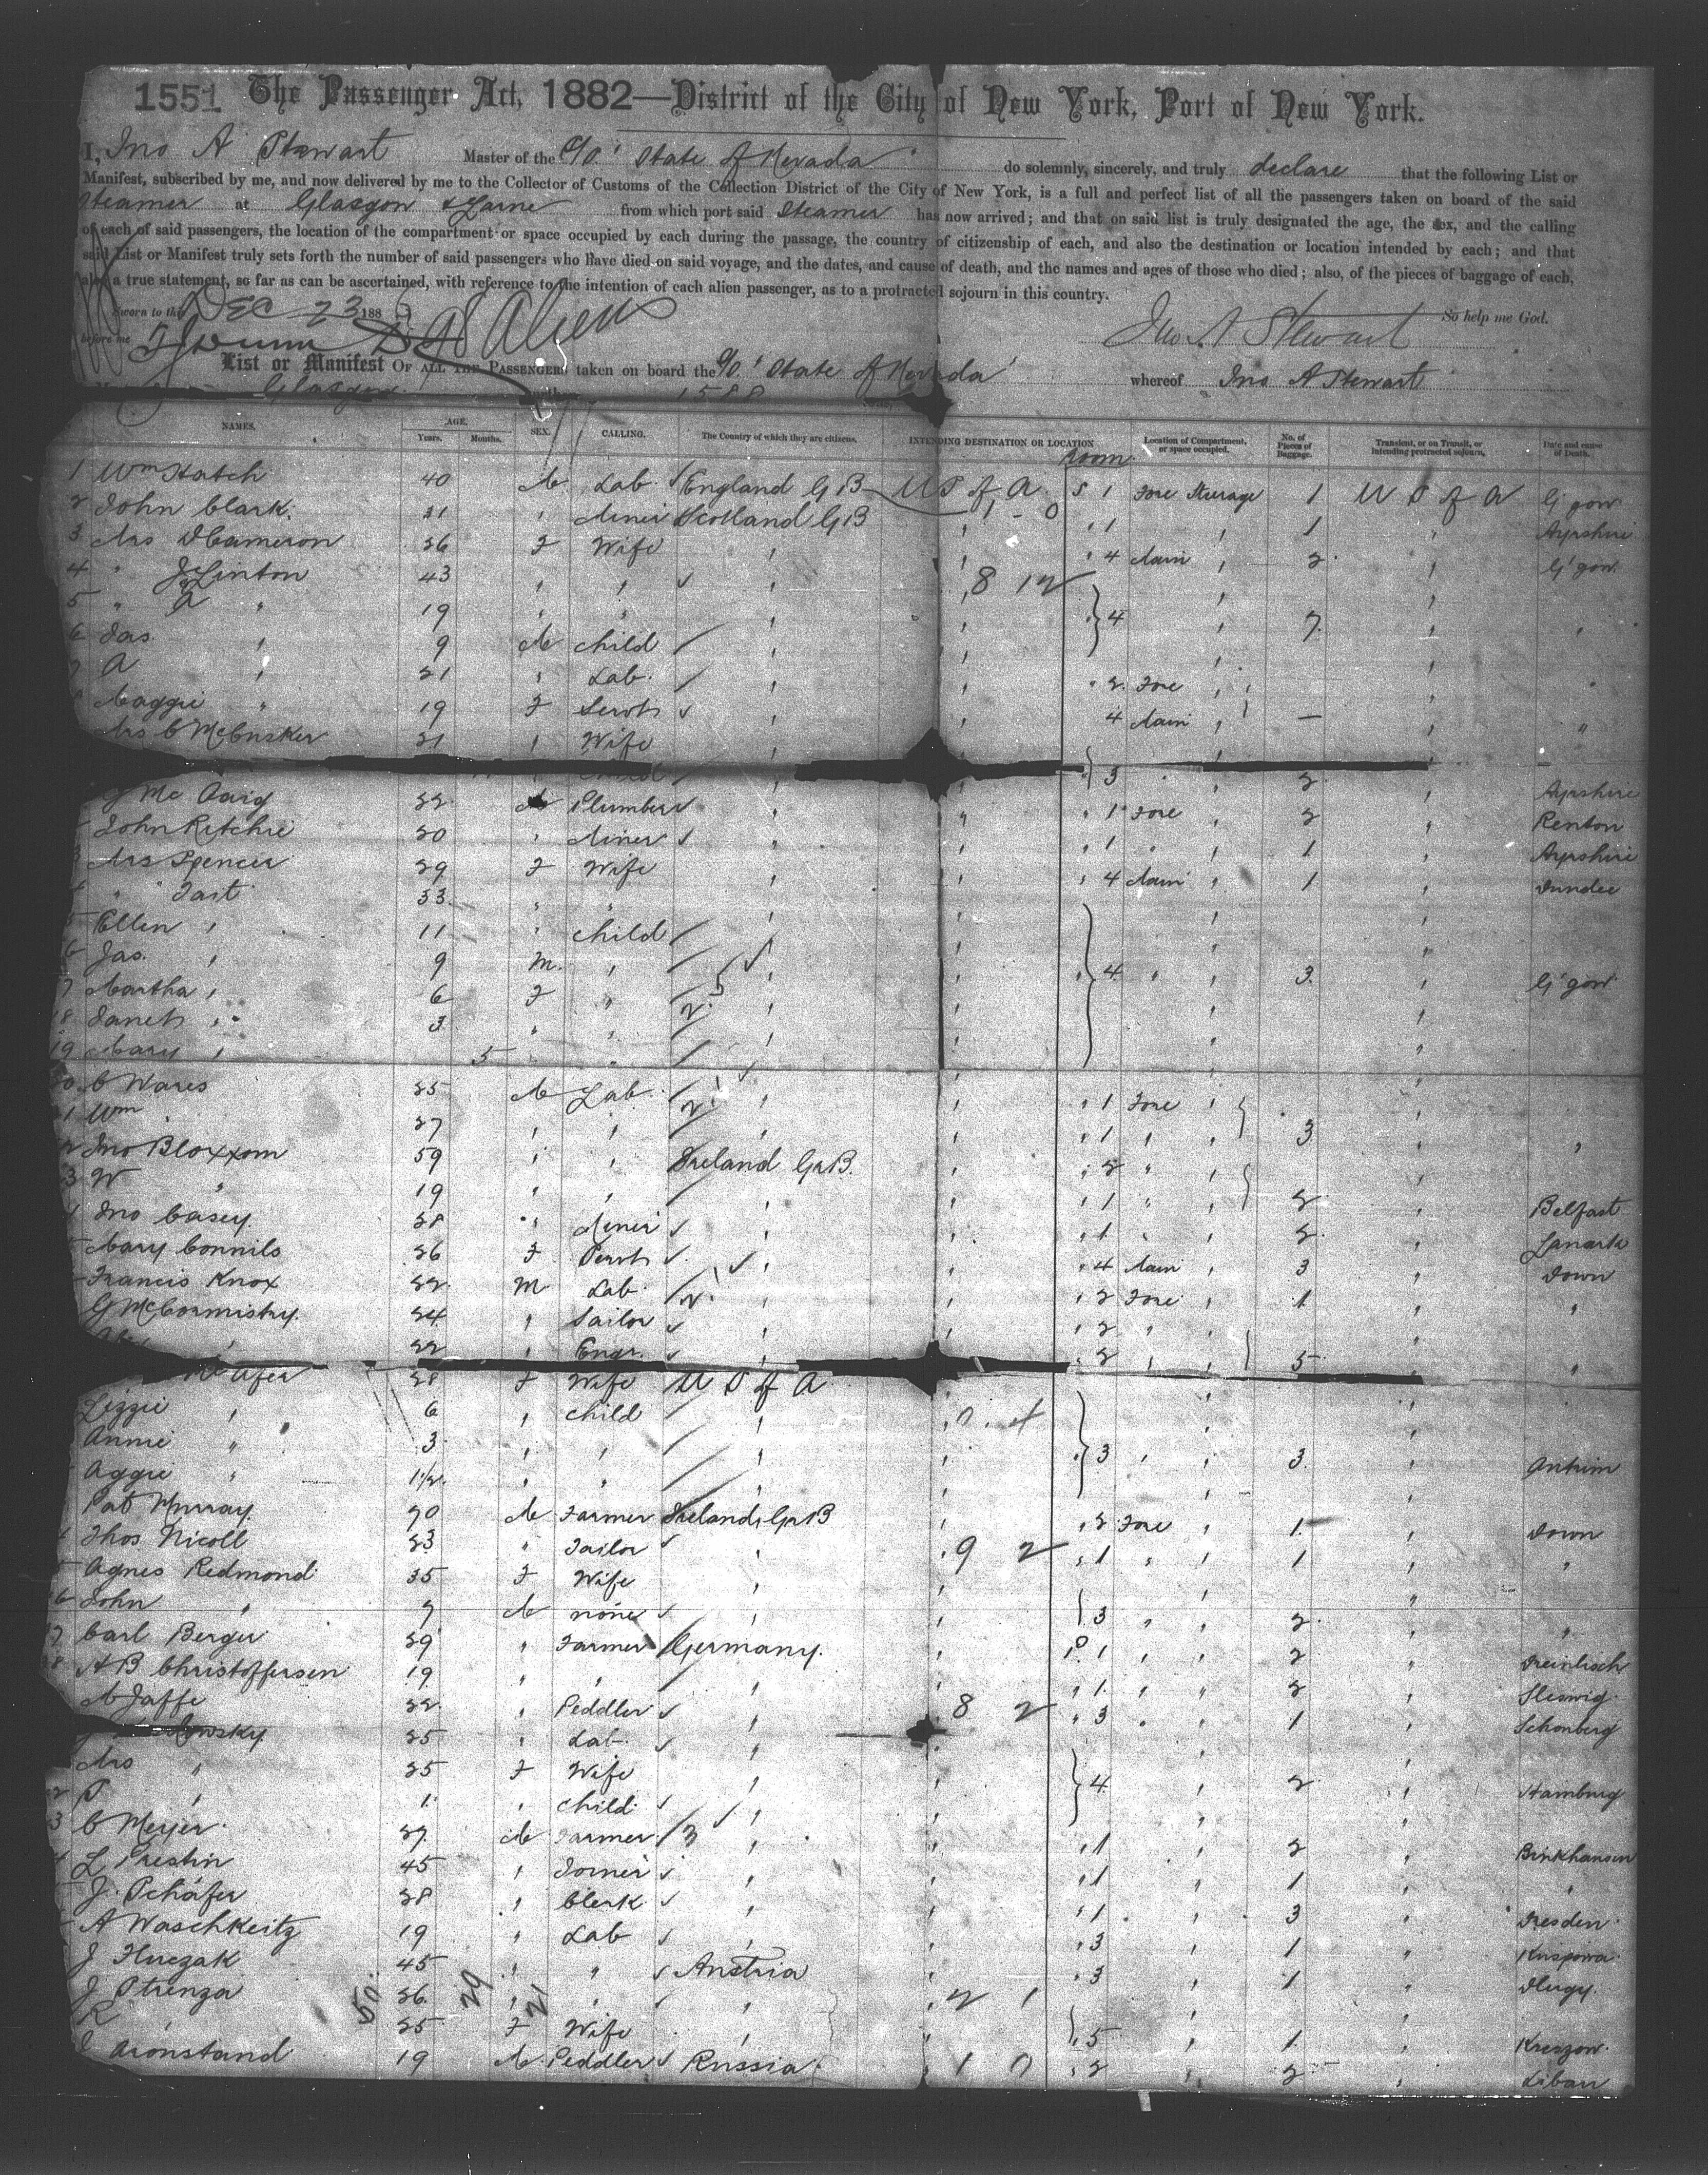 1551 The Passenger Act, 1882—District of the City of New York, Port of New York.
I, Jno A Stewart Master of the S/S "State of Nevada" do solemnly, sincerely, and truly declare that the following List or
Manifest, subscribed by me, and now delivered by me to the Collector of Customs of the Collection District of the City of New York, is a full and perfect list of all the passengers taken on board of the said
Steamer at Glasgow & Larne from which port said Steamer has now arrived; and that on said list is truly designated the age, the sex, and the calling
of each of said passengers, the location of the compartment or space occupied by each during the passage, the country of citizenship of each, and also the destination or location intended by each; and that
said List or Manifest truly sets forth the number of said passengers who have died on said voyage, and the dates, and cause of death, and the names and ages of those who died; also, of the pieces of baggage of each,
also a true statement, so far as can be ascertained, with reference to the intention of each alien passenger, as to a protracted sojourn in this country.
Sworn to this DEC 23 188 So help me God.
before me Jno A Stewart
List or Manifest OF ALL THE PASSENGERS taken on board the S/S "State of Nevada" whereof Jno A Stewart
Glasgow
NAMES. AGE. Years. Months. SEX. CALLING. The Country of which they are citizens. INTENDING DESTINATION OR LOCATION Location of Compartment, or space occupied. No. of Pieces of Baggage. Transient, or on Transit, or intending protracted sojourn. Date and cause of Death.
Room
1 Wm Hatch 40 M Lab. England GB US of A 1 Fore Steerage 1 US of A G'gow
2 John Clark. 31 " Miner Scotland GB " 1 " 1 " Ayrshire
3 Mrs D Cameron 26 F Wife " " 4 Main " 2 " G'gow
4 " J Linton 43 " " " "
5 " A " 19 " " " " 4 " 7 " "
6 Jas. " 9 M Child " "
7 A " 21 " Lab. " " 2 Fore " " "
Maggie " 19 F Servt " " 4 Main " — " "
Mrs C McCusker 21 " Wife
Child " 3 " 2 Ayrshire
22 M Plumber " " 1 Fore " 2 " Renton
John Ritchie 20 " Miner " " 1 " " 1 " Ayrshire
Mrs Spencer 29 F Wife " " 4 Main " 1 " Dundee
" Tait 33 " " " "
Ellen " 11 " Child " "
Jas. " 9 M. " " " 4 " " 3 " G'gow
7 Martha " 6 F " " "
18 Janet " 3 " " " "
19 Mary " 5 " " " "
C Wares 25 M Lab. " " 1 Fore "
Wm " 27 " " " " 1 " " 3 " "
Jno Bloxxom 59 " " Ireland GrB. " 2 " "
W " 19 " " " " 1 " " 2 " Belfast
Jno Casey 28 " Miner " " 1 " " 2 " Lanark
Mary Connils 26 F Servt " " 4 Main " 3 " Down
Francis Knox 22 M Lab. " " 2 Fore " 1 " "
G McCormistry 24 " Sailor " " 2 " "
22 " Engr. " " 2 " " 5 " "
28 F Wife US of A
Lizzie " 6 " Child " "
Annie " 3 " " " " 3 " " 3 " Antrim
Aggie " 1½ " " " "
Pat Murray 20 M Farmer Ireland, GrB " 2 Fore " 1 " Down
Thos Nicoll 23 " Tailor " " 1 " " 1 " "
Agnes Redmond 35 F Wife " "
John " 7 M none " " 3 " " 2 " "
Carl Berger 29 " Farmer Germany. " 1 " " 2 "
A B Christoffersen 19 " " " " 1 " " 2 " Sleswig
M Jaffe 22 " Peddler " " 3 " " 1 " Schonberg
25 " Lab. " "
Mrs " 25 F Wife " " 4 " 2 " Hamburg
" 1 " Child " "
C Meyer 27 M Farmer " " 1 " 2 " Brinkhausen
L Prestin 45 " Joiner " " 1 " 1 " "
J. Schäfer 28 " Clerk " " 1 " 3 " Dresden
A Waschkeitz 19 " Lab " " 3 " 1 "
J 45 " " Austria " 3 " 1 "
J Strenza 26 " " " "
R " 25 F Wife " " 5 " 1 "
Aronstand 19 M Peddler Russia " 2 " 2 " Liban